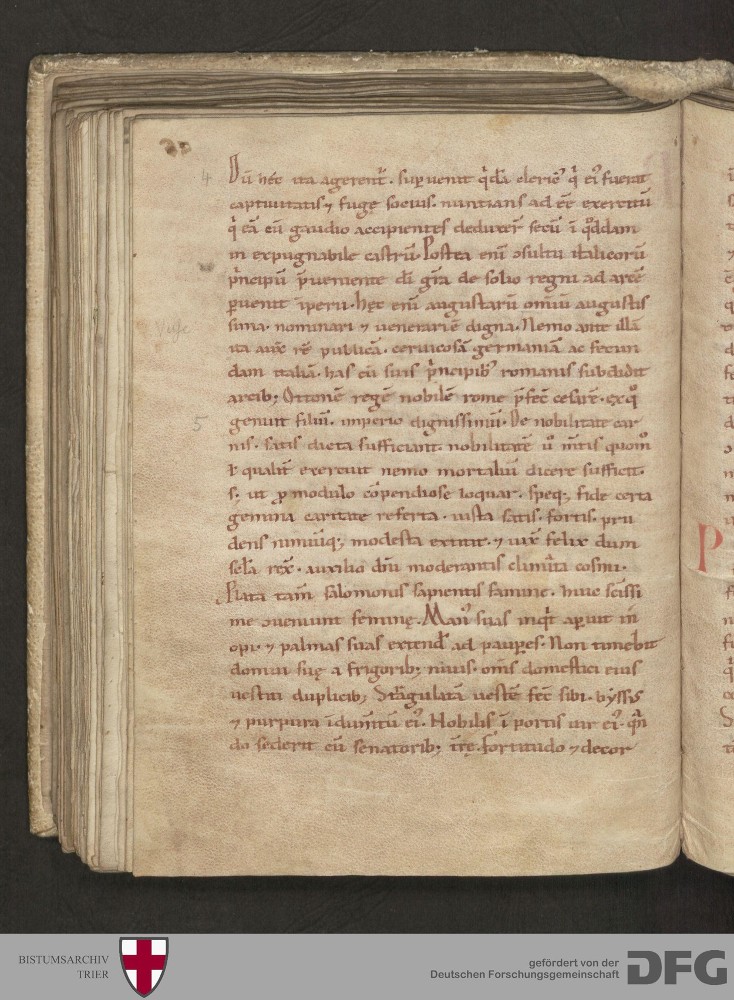 4 Dū hęc ita agerent᷑. supuenit q̇dā clericꝰ q̇ eiꝰ fuerat
captiuitatis ⁊ fugę socius. nuntians adeē exercitū
q̇ eā cū gaudio accipientes deduxer̄ secū ī qͦddam
in expugnabile castrū. Postea eni ꝯsultu italicorū
p̓ncipū p̄ueniente dī gr̄a de solio regni ad arcē
puenit īperii. hęc eni augustarū omīū augustis
sima. nominari ⁊ uenerari ē digna. Nemo ante illā
ita aux̄ rē publicā. ceruicosā germaniā ac fecun
dam italiā. has cū suis p̓ncipibꝰ romanis subdidit
arcib; Ottonē regē nobilē rome p̄fec̄ cesarē. ex qͦ
5 genuit filiū. imperio dignissimū. De nobilitate car
nis. satis dicta sufficiant. nobilitatē ū m̄tis quomͦ
ł qualit̄ exercuit nemo mortaliū dicere sufficit.
s; ut ꝓ modulo cōpendiose loquar. speq; fide certa
gemina caritate referta. iusta satis. fortis. pru
dens nimiūq; modesta extitit. ⁊ uix̄ felix dum
sc̄la rex̄. auxilio dn̄i moderantis climata cosmi.
Plata tam̄ salomonis sapientis famine. huic sc̄issi
me ꝯueniunt feminę. Manꝰ suas inqͥt aperuit in
opi. ⁊ palmas suas extend̄ ad paupes. Non timebit
domui suę a frigorib; niuis. om̄s domestici eius
uestiti duplicib; Strāgulatā uestē fec̄ sibi. byssꝰ
⁊ purpura īdum̄tū eiꝰ. Nobilis ī portis uir eiꝰ. qn̄
do sederit cū senatorib; tr̄ę. fortitudo ⁊ decor
P
BISTUMSARCHIV
TRIER
gefördert von der
Deutschen Forschungsgemeinschaft
DFG